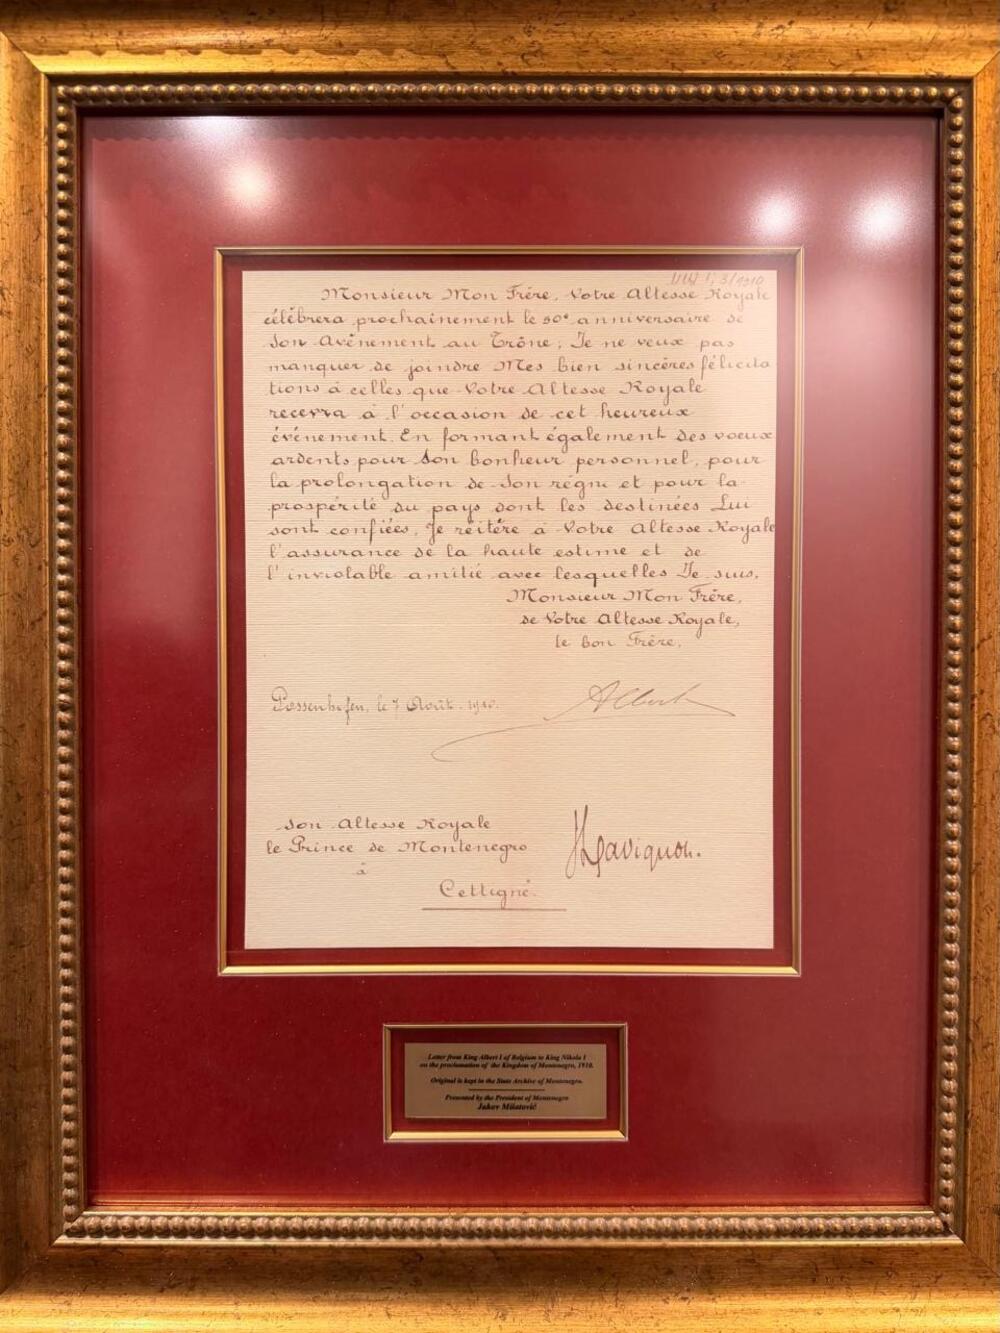 Monsieur Mon Frère, Votre Altesse Royale
célébrera prochainement le 50e anniversaire de
Son Avènement au Trône; Je ne veux pas
manquer de joindre Mes bien sincères félicita
tions à celles que Votre Altesse Royale
recevra à l'occasion de cet heureux
événement. En formant également des voeux
ardents pour Son bonheur personnel, pour
la prolongation de Son règne et pour la
prospérité du pays dont les destinées Lui
sont confiées, Je réitère à Votre Altesse Royale
l'assurance de la haute estime et de
l'inviolable amitié avec lesquelles Je suis,
Monsieur Mon Frère,
de Votre Altesse Royale,
le bon Frère,
Possenhofen, le 7 Août 1910.
Albert
Son Altesse Royale
le Prince de Montenegro
à
Cettigné.
Davignon.
Letter from King Albert I of Belgium to King Nikola I
on the proclamation of the Kingdom of Montenegro, 1910.
Original is kept in the State Archive of Montenegro.
Presented by the President of Montenegro
Jakov Milatović